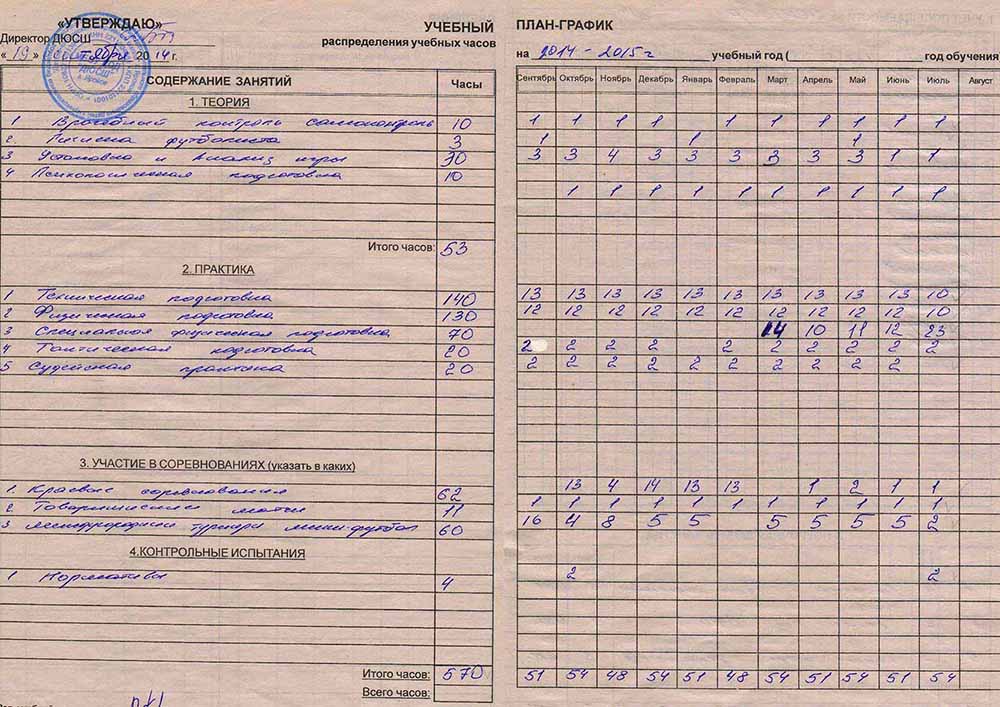 «УТВЕРЖДАЮ» УЧЕБНЫЙ ПЛАН-ГРАФИК
Директор ДЮСШ распределения учебных часов
« 19 » сентября 2014 г. на 2014 - 2015 г учебный год ( год обучения
СОДЕРЖАНИЕ ЗАНЯТИЙ Часы Сентябрь Октябрь Ноябрь Декабрь Январь Февраль Март Апрель Май Июнь Июль Август
1. ТЕОРИЯ
1 Врачебный контроль самоконтроль 10 1 1 1 1 1 1 1 1 1 1
2. Гигиена футболиста 3 1 1 1
3 Установка и анализ игры 30 3 3 4 3 3 3 3 3 3 1 1
4 Психологическая подготовка 10
1 1 1 1 1 1 1 1 1 1
Итого часов: 53
2. ПРАКТИКА
1 Техническая подготовка 140 13 13 13 13 13 13 13 13 13 13 10
2 Физическая подготовка 130 12 12 12 12 12 12 12 12 12 12 10
3 Специальная физическая подготовка 70 14 10 11 12 23
4 Тактическая подготовка 20 2 2 2 2 2 2 2 2 2 2
5 Судейская практика 20 2 2 2 2 2 2 2 2 2 2
3. УЧАСТИЕ В СОРЕВНОВАНИЯХ (указать в каких)
1. Краевые соревнования 62 13 4 14 13 13 1 2 1 1
2 Товарищеские матчи 11 1 1 1 1 1 1 1 1 1 1 1
3 турниры мини-футбол 60 16 4 8 5 5 5 5 5 5 2
4.КОНТРОЛЬНЫЕ ИСПЫТАНИЯ
1 Нормативы 4 2 2
Итого часов: 570 51 54 48 54 51 48 54 51 54 51 54
Всего часов: